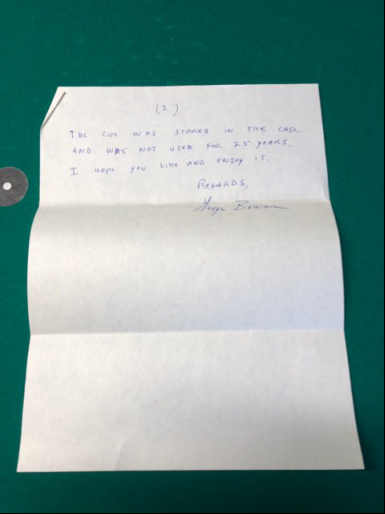 (2)
THE CUE WAS STORED IN THE CASE
AND WAS NOT USED FOR 25 YEARS.
I HOPE YOU LIKE AND ENJOY IT.
REGARDS,